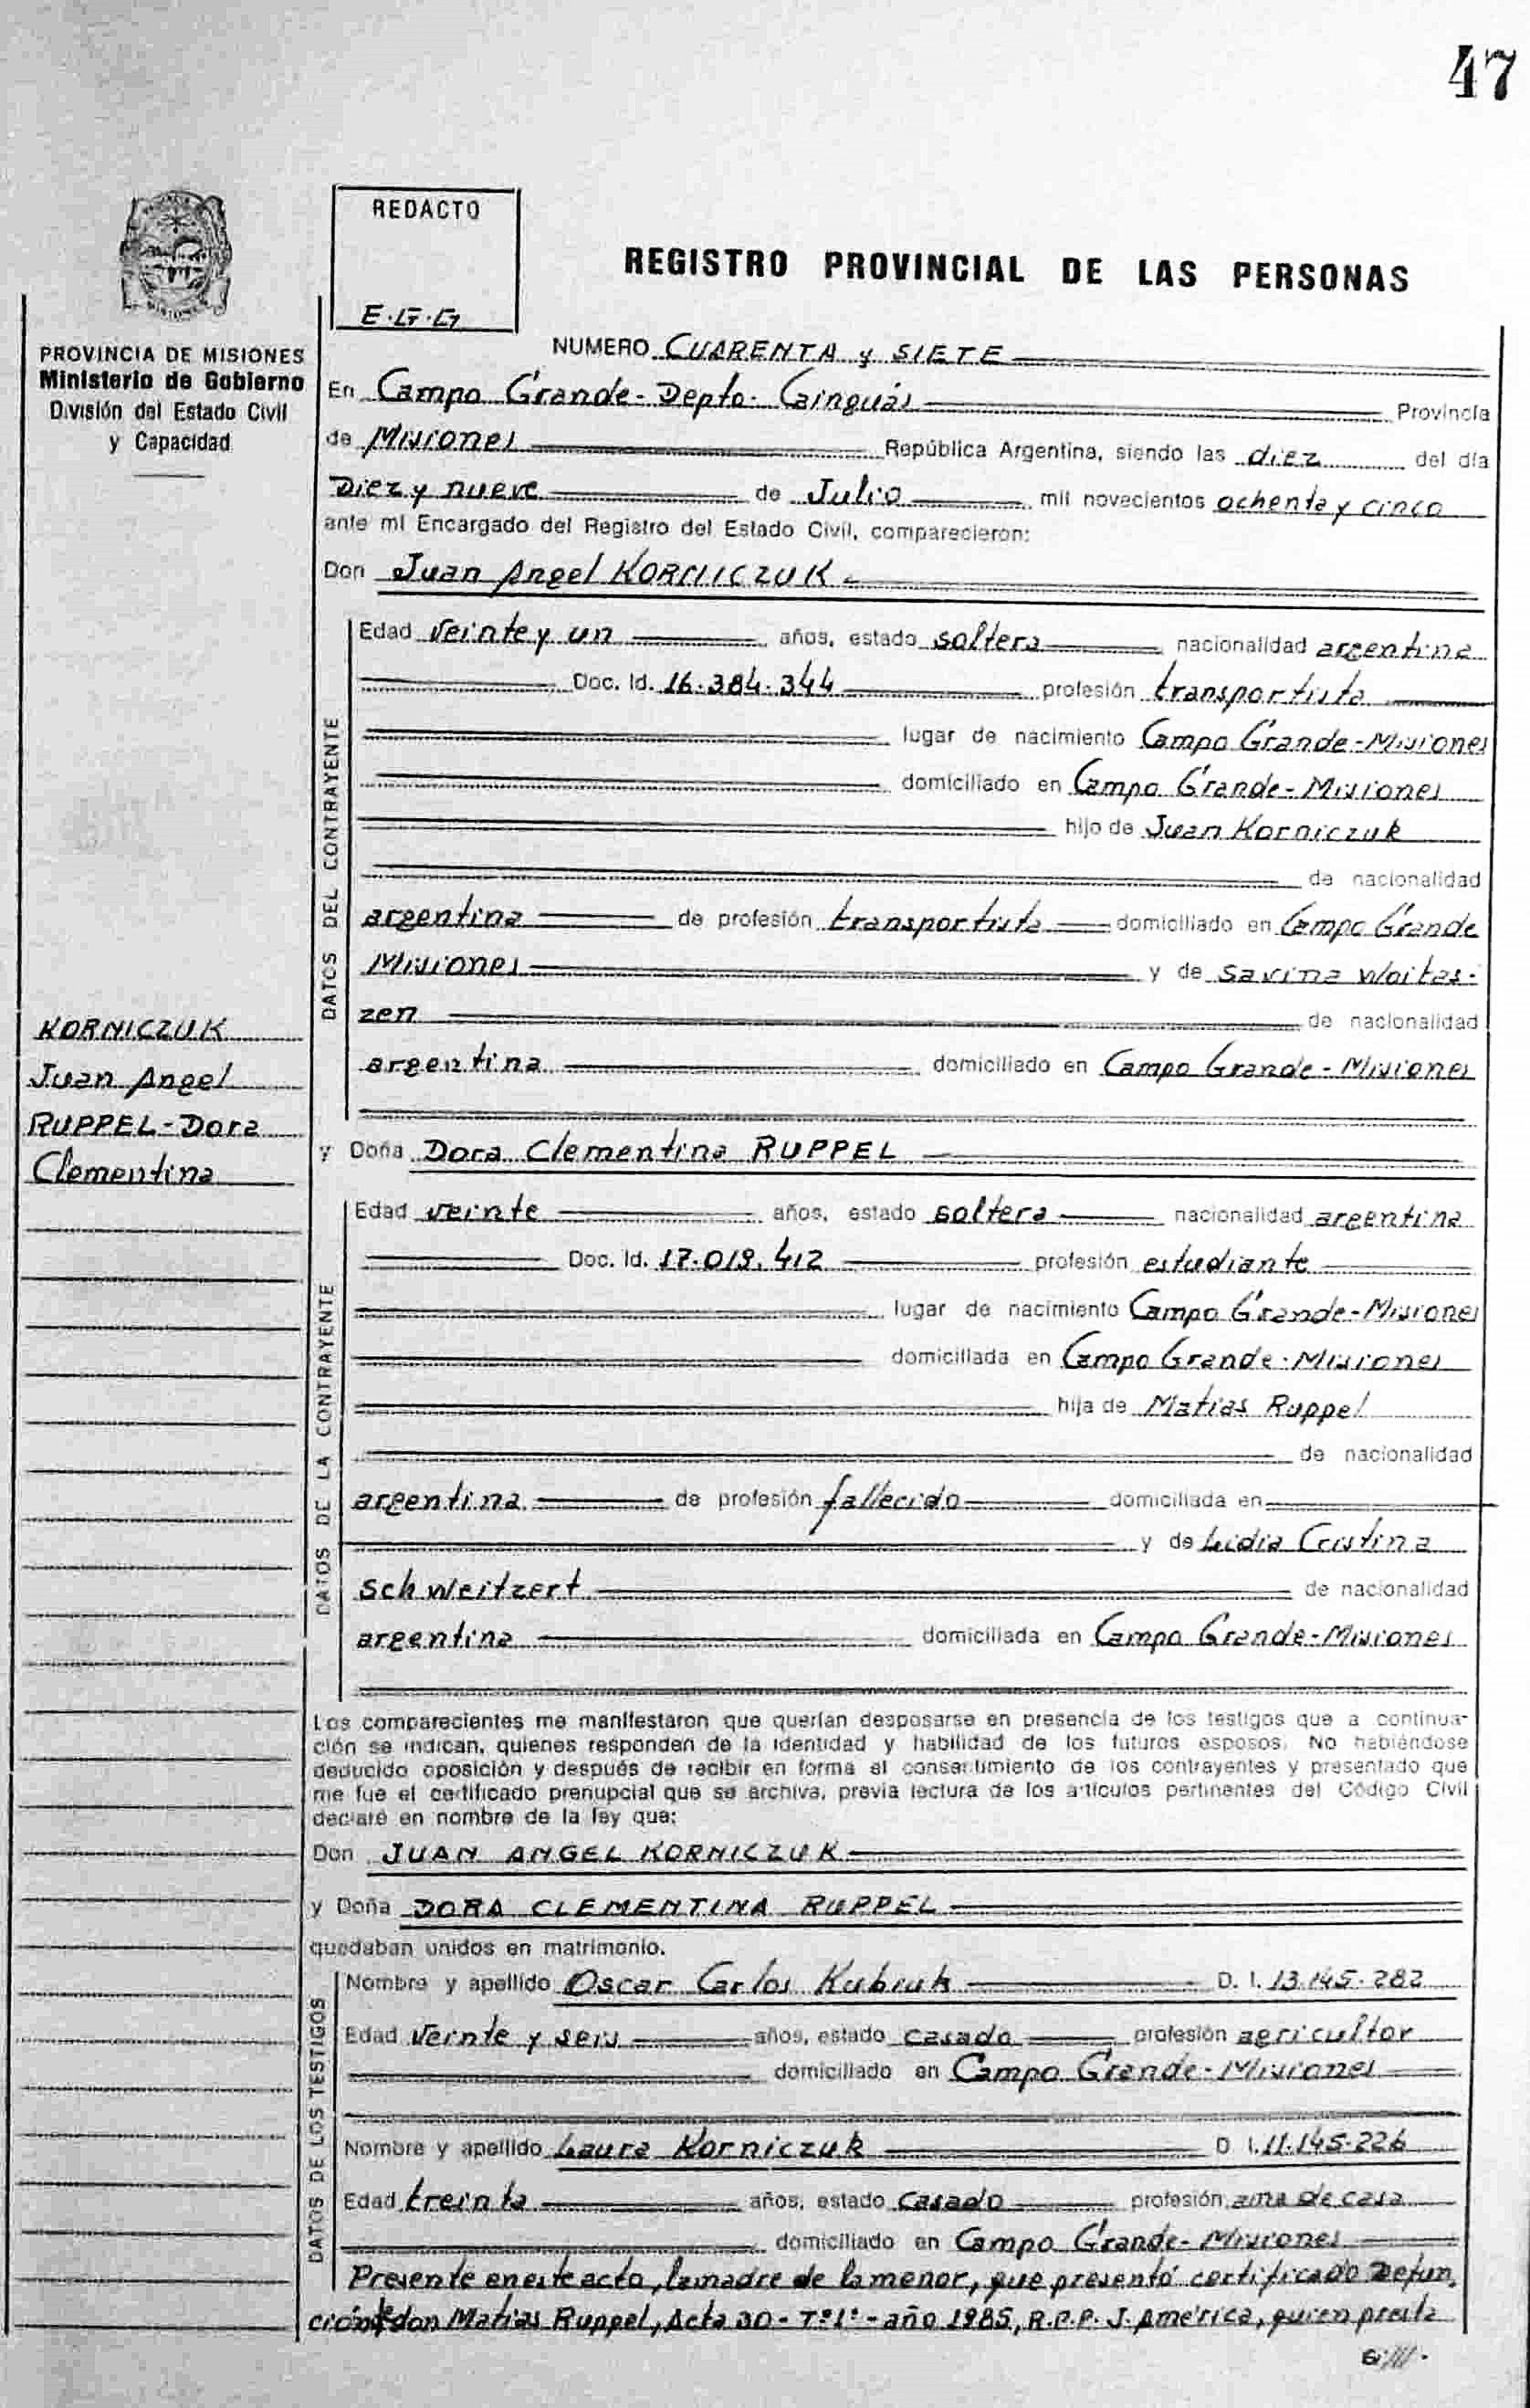 47
REDACTO
E.G.G
REGISTRO PROVINCIAL DE LAS PERSONAS
PROVINCIA DE MISIONES
Ministerio de Gobierno
División del Estado Civil
y Capacidad
NUMERO CUARENTA y SIETE
En Campo Grande - Depto. Cainguás Provincia
de Misiones República Argentina, siendo las diez del día
Diez y nueve de Julio mil novecientos ochenta y cinco
ante mi Encargado del Registro del Estado Civil, comparecieron:
Don Juan Angel KORNICZUK
DATOS DEL CONTRAYENTE
Edad veinte y un años, estado soltero nacionalidad argentina
Doc. Id. 16.384.344 profesión transportista
lugar de nacimiento Campo Grande - Misiones
domiciliado en Campo Grande - Misiones
hijo de Juan Korniczuk
de nacionalidad
argentina de profesión transportista domiciliado en Campo Grande
Misiones y de Savina Woitas-
zen de nacionalidad
argentina domiciliado en Campo Grande - Misiones
KORNICZUK
Juan Angel
RUPPEL - Dora
Clementina
y Doña Dora Clementina RUPPEL
DATOS DE LA CONTRAYENTE
Edad veinte años, estado soltera nacionalidad argentina
Doc. Id. 17.019.412 profesión estudiante
lugar de nacimiento Campo Grande - Misiones
domicillada en Campo Grande - Misiones
hija de Matias Ruppel
de nacionalidad
argentina de profesión fallecido domiciliada en
y de Lidia Cristina
Schweitzert de nacionalidad
argentina domiciliada en Campo Grande - Misiones
Los comparecientes me manifestaron que querían desposarse en presencia de los testigos que a continua-
ción se indican, quienes responden de la identidad y habilidad de los futuros esposos. No habiéndose
deducido oposición y después de recibir en forma el consentimiento de los contrayentes y presentado que
me fue el certificado prenupcial que se archiva, previa lectura de los artículos pertinentes del Código Civil
declaré en nombre de la ley que:
Don JUAN ANGEL KORNICZUK
y Doña DORA CLEMENTINA RUPPEL
quedaban unidos en matrimonio.
DATOS DE LOS TESTIGOS
Nombre y apellido Oscar Carlos Kubiuk D. I. 13.145.282
Edad veinte y seis años, estado casado profesión agricultor
domicillado en Campo Grande - Misiones
Nombre y apellido Laura Korniczuk D. I. 11.145.226
Edad treinta años, estado casado profesión ama de casa
domiciliado en Campo Grande - Misiones
Presente en este acto, la madre de la menor, que presentó certificado Defun.
ción de don Matias Ruppel, Acta 30 - Tº1º - año 1985, R.P.P. J. América, quien presta